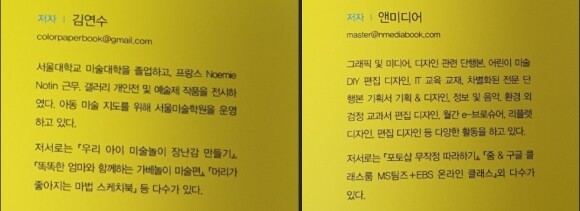 저자 | 김연수
colorpaperbook@gmail.com
서울대학교 미술대학을 졸업하고, 프랑스 Noemie
Notin 근무, 갤러리 개인전 및 예술제 작품을 전시하
였다. 아동 미술 지도를 위해 서울미술학원을 운영
하고 있다.
저서로는 『우리 아이 미술놀이 장난감 만들기』,
『똑똑한 엄마와 함께하는 가베놀이 미술편』, 『머리가
좋아지는 마법 스케치북』 등 다수가 있다.
저자 | 앤미디어
master@nmediabook.com
그래픽 및 미디어, 디자인 관련 단행본, 어린이 미술
DIY 편집 디자인, IT 교육 교재, 차별화된 전문 단
행본 기획서 기획 & 디자인, 정보 및 음악, 환경 외
검정 교과서 편집 디자인, 월간 e-브로슈어, 리플렛
디자인, 편집 디자인 등 다양한 활동을 하고 있다.
저서로는 『포토샵 무작정 따라하기』, 『줌 & 구글 클
래스룸 MS팀즈+EBS 온라인 클래스』외 다수가
있다.